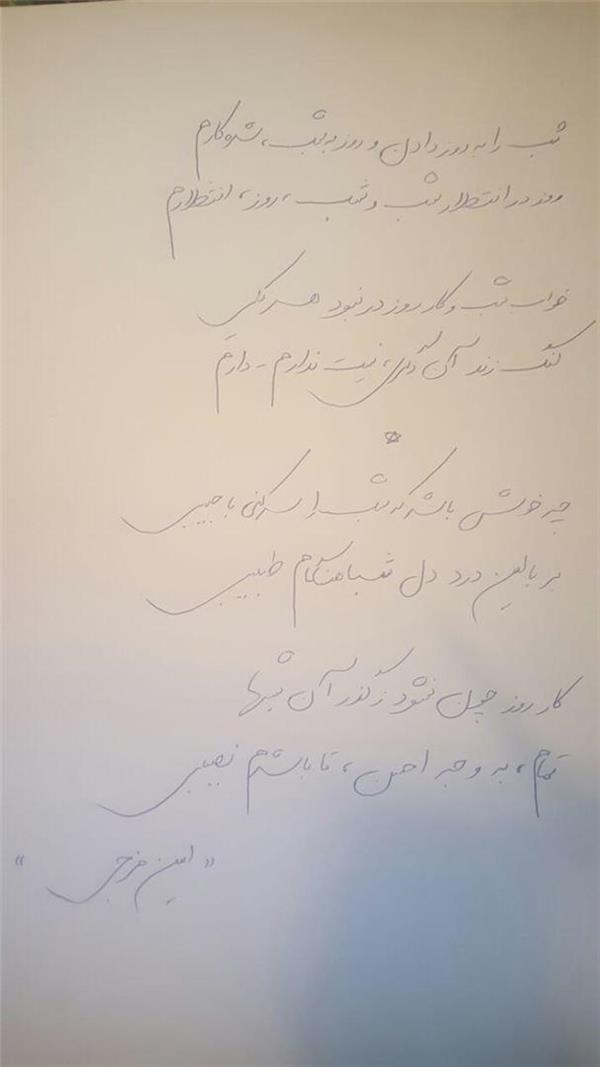 شب را به روز دادن و روز به شب، شده کارم
روز در انتظار شب و شب، روز، انتظارم
خواب شب و کار روز در نبود هر یکی
لنگ زند آن دگری، نیست ندارم - دارم
چه خوش باشد که شب را سر کنی با حبیبی
بر بالین درد دل شباهنگام طبیبی
کار روز چون نشود ز گذر آن شبها
تمام، به وجه احسن، تا باشدم نصیبی
« امین فرجی »